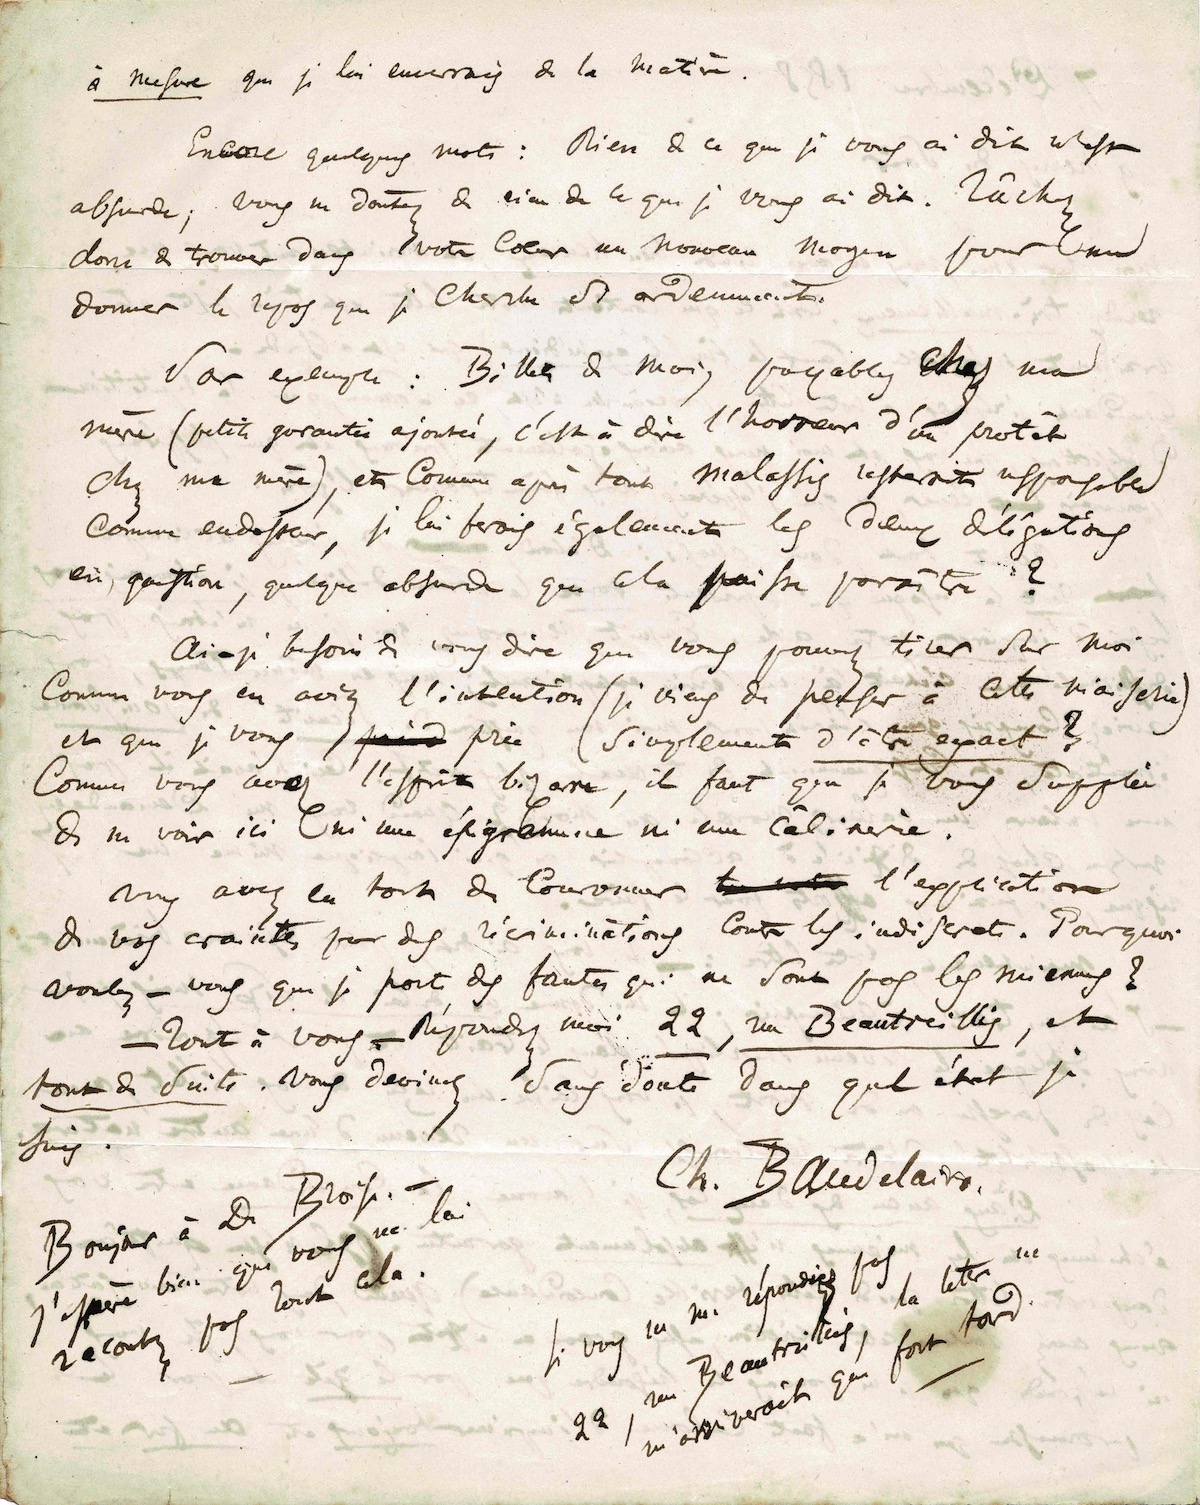 à mesure que je lui enverrais de la matière.
Encore quelques mots : Rien de ce que je vous ai dit n'est
absurde ; vous ne doutez de rien de ce que je vous ai dit. Tâchez
donc de trouver dans votre cœur un nouveau moyen pour me
donner le repos que je cherche si ardemment.
Par exemple : Billets de mois, payables chez ma
mère (petite garantie ajoutée, c'est à dire l'horreur d'un protêt
chez ma mère), et comme après tout Malassis resterait responsable
comme endosseur, je lui ferais également les deux délégations
en question, quelque absurde que cela puisse paraître ?
Ai-je besoin de vous dire que vous pouvez tirer sur moi
comme vous en aviez l'intention (je viens de penser à cette niaiserie)
et que je vous prie simplement d'être exact ?
Comme vous avez l'esprit bizarre, il faut que je vous supplie
de ne voir ici ni une épigramme ni une câlinerie.
Vous avez eu tort de couronner l'explication
de vos craintes par des récriminations contre les indiscrets. Pourquoi
voulez-vous que je porte des fautes qui ne sont pas les miennes ?
— Tout à vous — Répondez moi 22, rue Beautreillis, et
tout de suite. Vous devinez sans doute dans quel état je
suis.
Ch. Baudelaire.
Bonjour à De Broise. —
J'espère bien que vous ne lui
racontez pas tout cela. —
Si vous ne me répondiez pas
22, rue Beautreillis, la lettre ne
m'arriverait que fort tard.